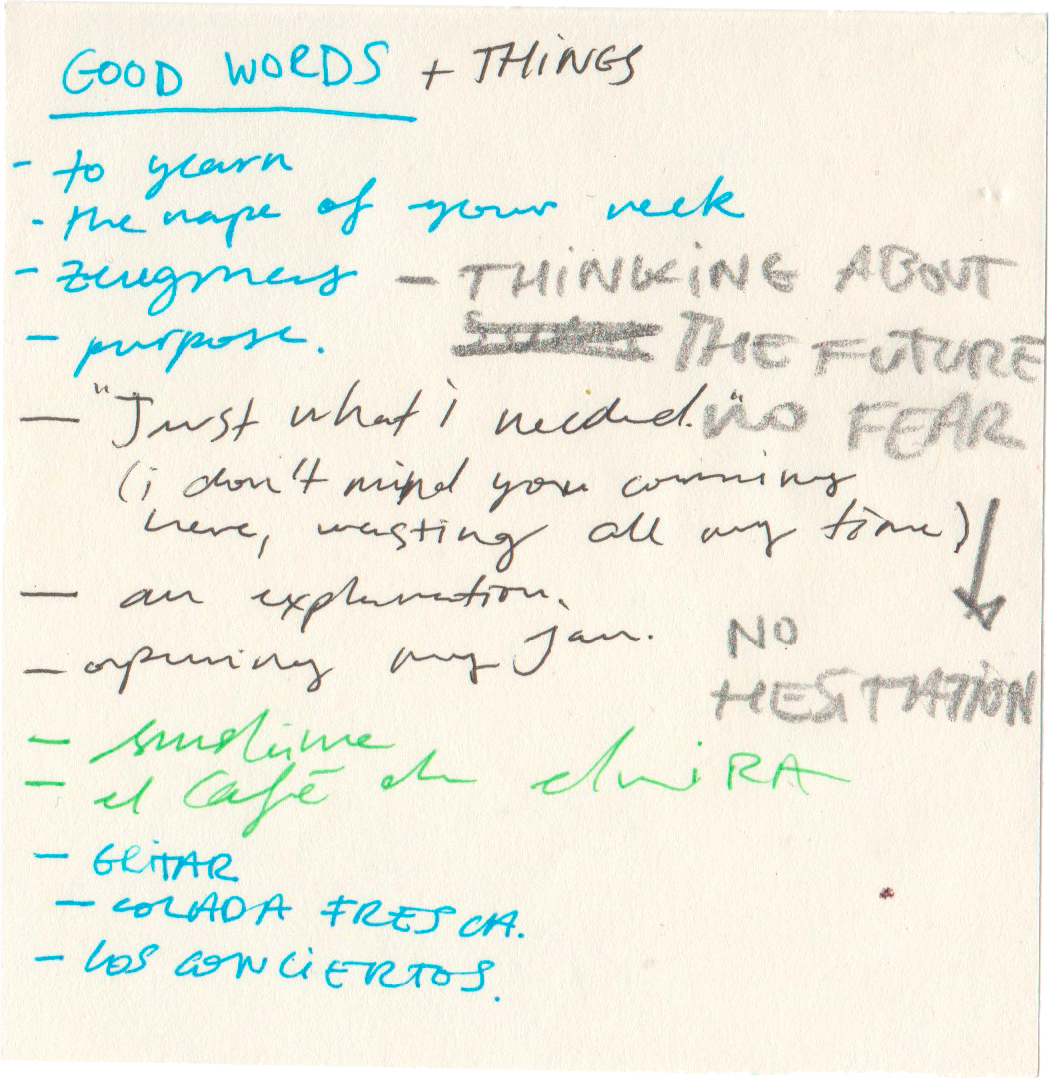 GOOD WORDS + THINGS
- to yearn
- the nape of your neck
- zeugmas
- purpose.
— "Just what i needed."
(i don't mind you coming
here, wasting all my time)
— an explanation.
— opening my jan.
—
— el Café de elviRA
— GRITAR
— COLADA FRESCA.
— LOS CONCIERTOS.
— THINKING ABOUT
THE FUTURE
NO FEAR
NO
HESITATION